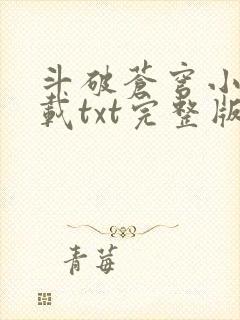 斗破蒼穹小
載txt完整版
青莓